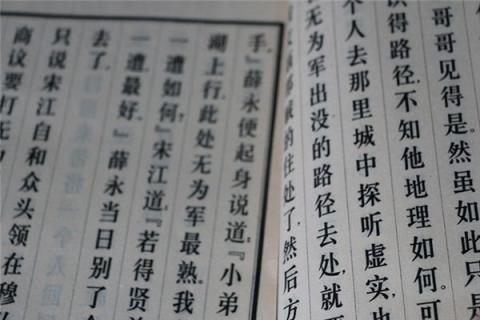 哥哥见得是。然虽如此，只
识得路径，不知他地理如何。可
个人去那里城中探听虚实，也
无为军出没的路径去处，就
的住处了，然后方
手。』薛永便起身说道：『小弟
湖上行，此处无为军最熟。我
一遭如何？』宋江道：『若得贤
一遭最好。』薛永当日别了
去了。
只说宋江自和众头领在穆
商议要打无